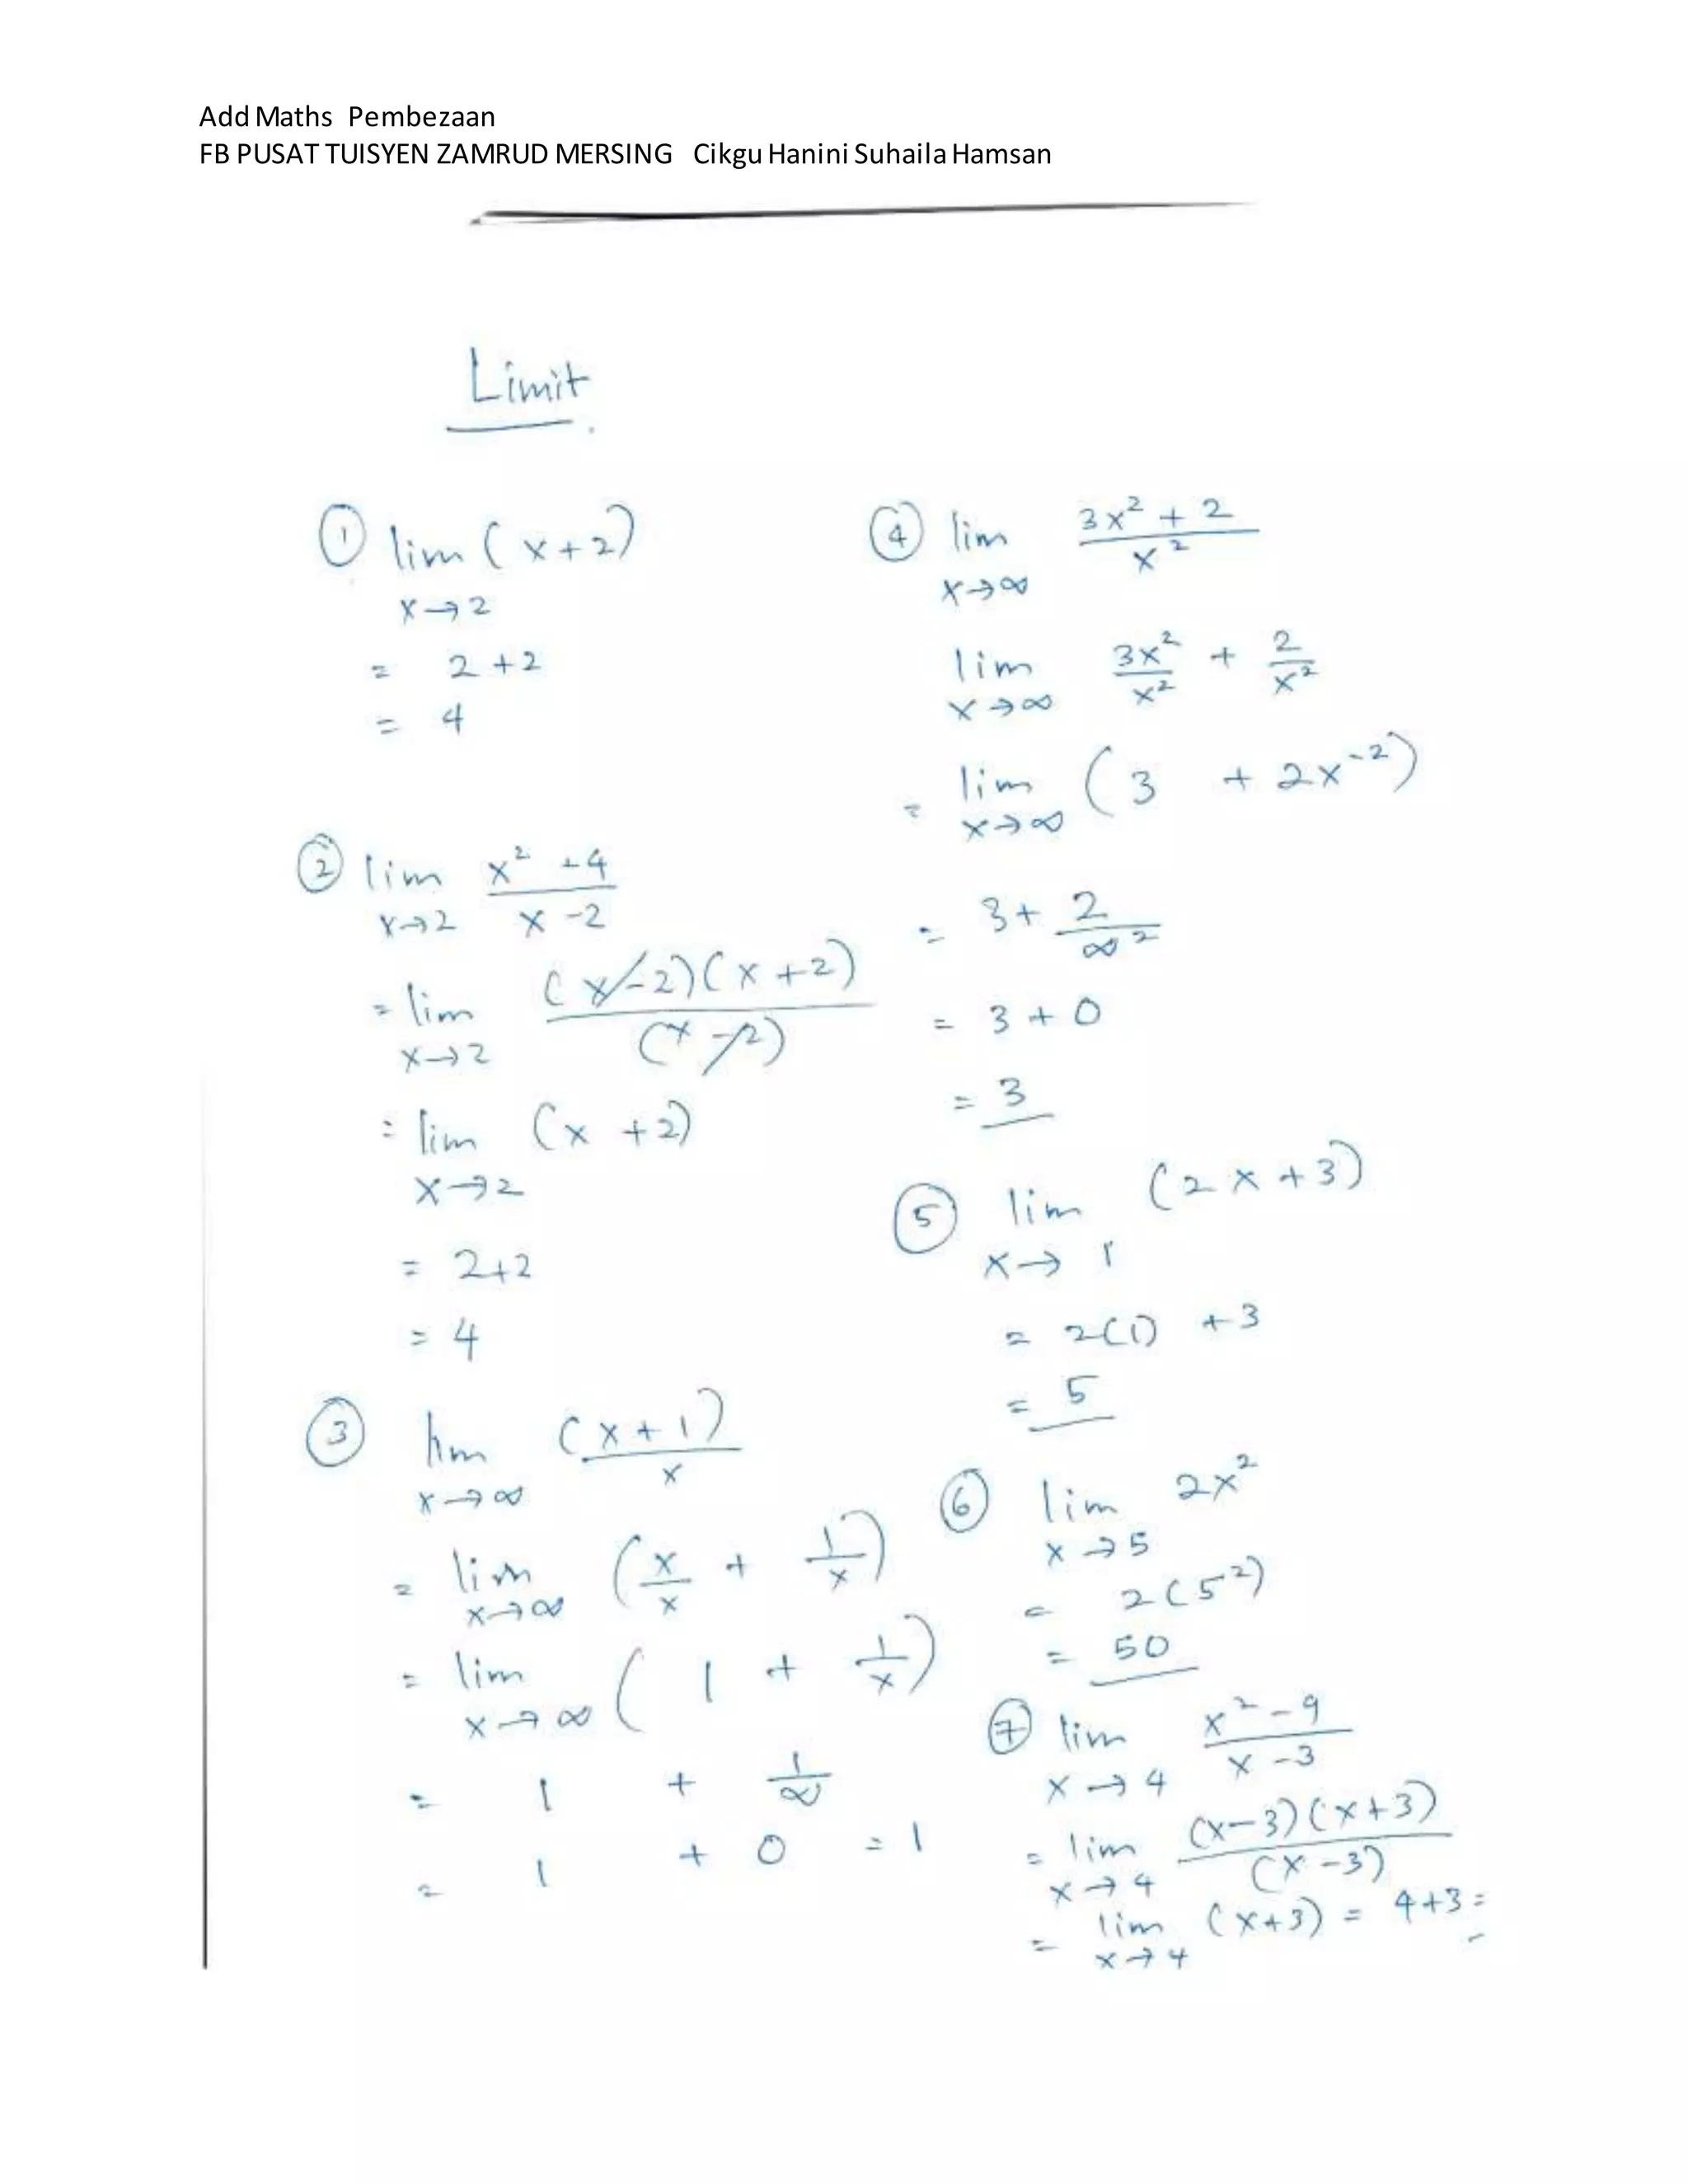 Add Maths Pembezaan
FB PUSAT TUISYEN ZAMRUD MERSING Cikgu Hanini Suhaila Hamsan
Limit
① lim (x+2)
x→2
= 2+2
= 4
② lim x² +4 / x -2
x→2
= lim (x-2)(x+2) / (x-2)
x→2
= lim (x +2)
x→2
= 2+2
= 4
③ lim (x+1) / x
x→∞
= lim (x/x + 1/x)
x→∞
= lim (1 + 1/x)
x→∞
= 1 + 1/∞
= 1 + 0 = 1
④ lim 3x² + 2 / x²
x→∞
lim 3x²/x² + 2/x²
x→∞
= lim (3 + 2x⁻²)
x→∞
= 3 + 2/∞²
= 3 + 0
= 3
⑤ lim (2x+3)
x→ 1
= 2(1) +3
= 5
⑥ lim 2x²
x→5
= 2(5²)
= 50
⑦ lim x²-9 / x-3
x→4
= lim (x-3)(x+3) / (x-3)
x→4
= lim (x+3) = 4+3 =
x→4